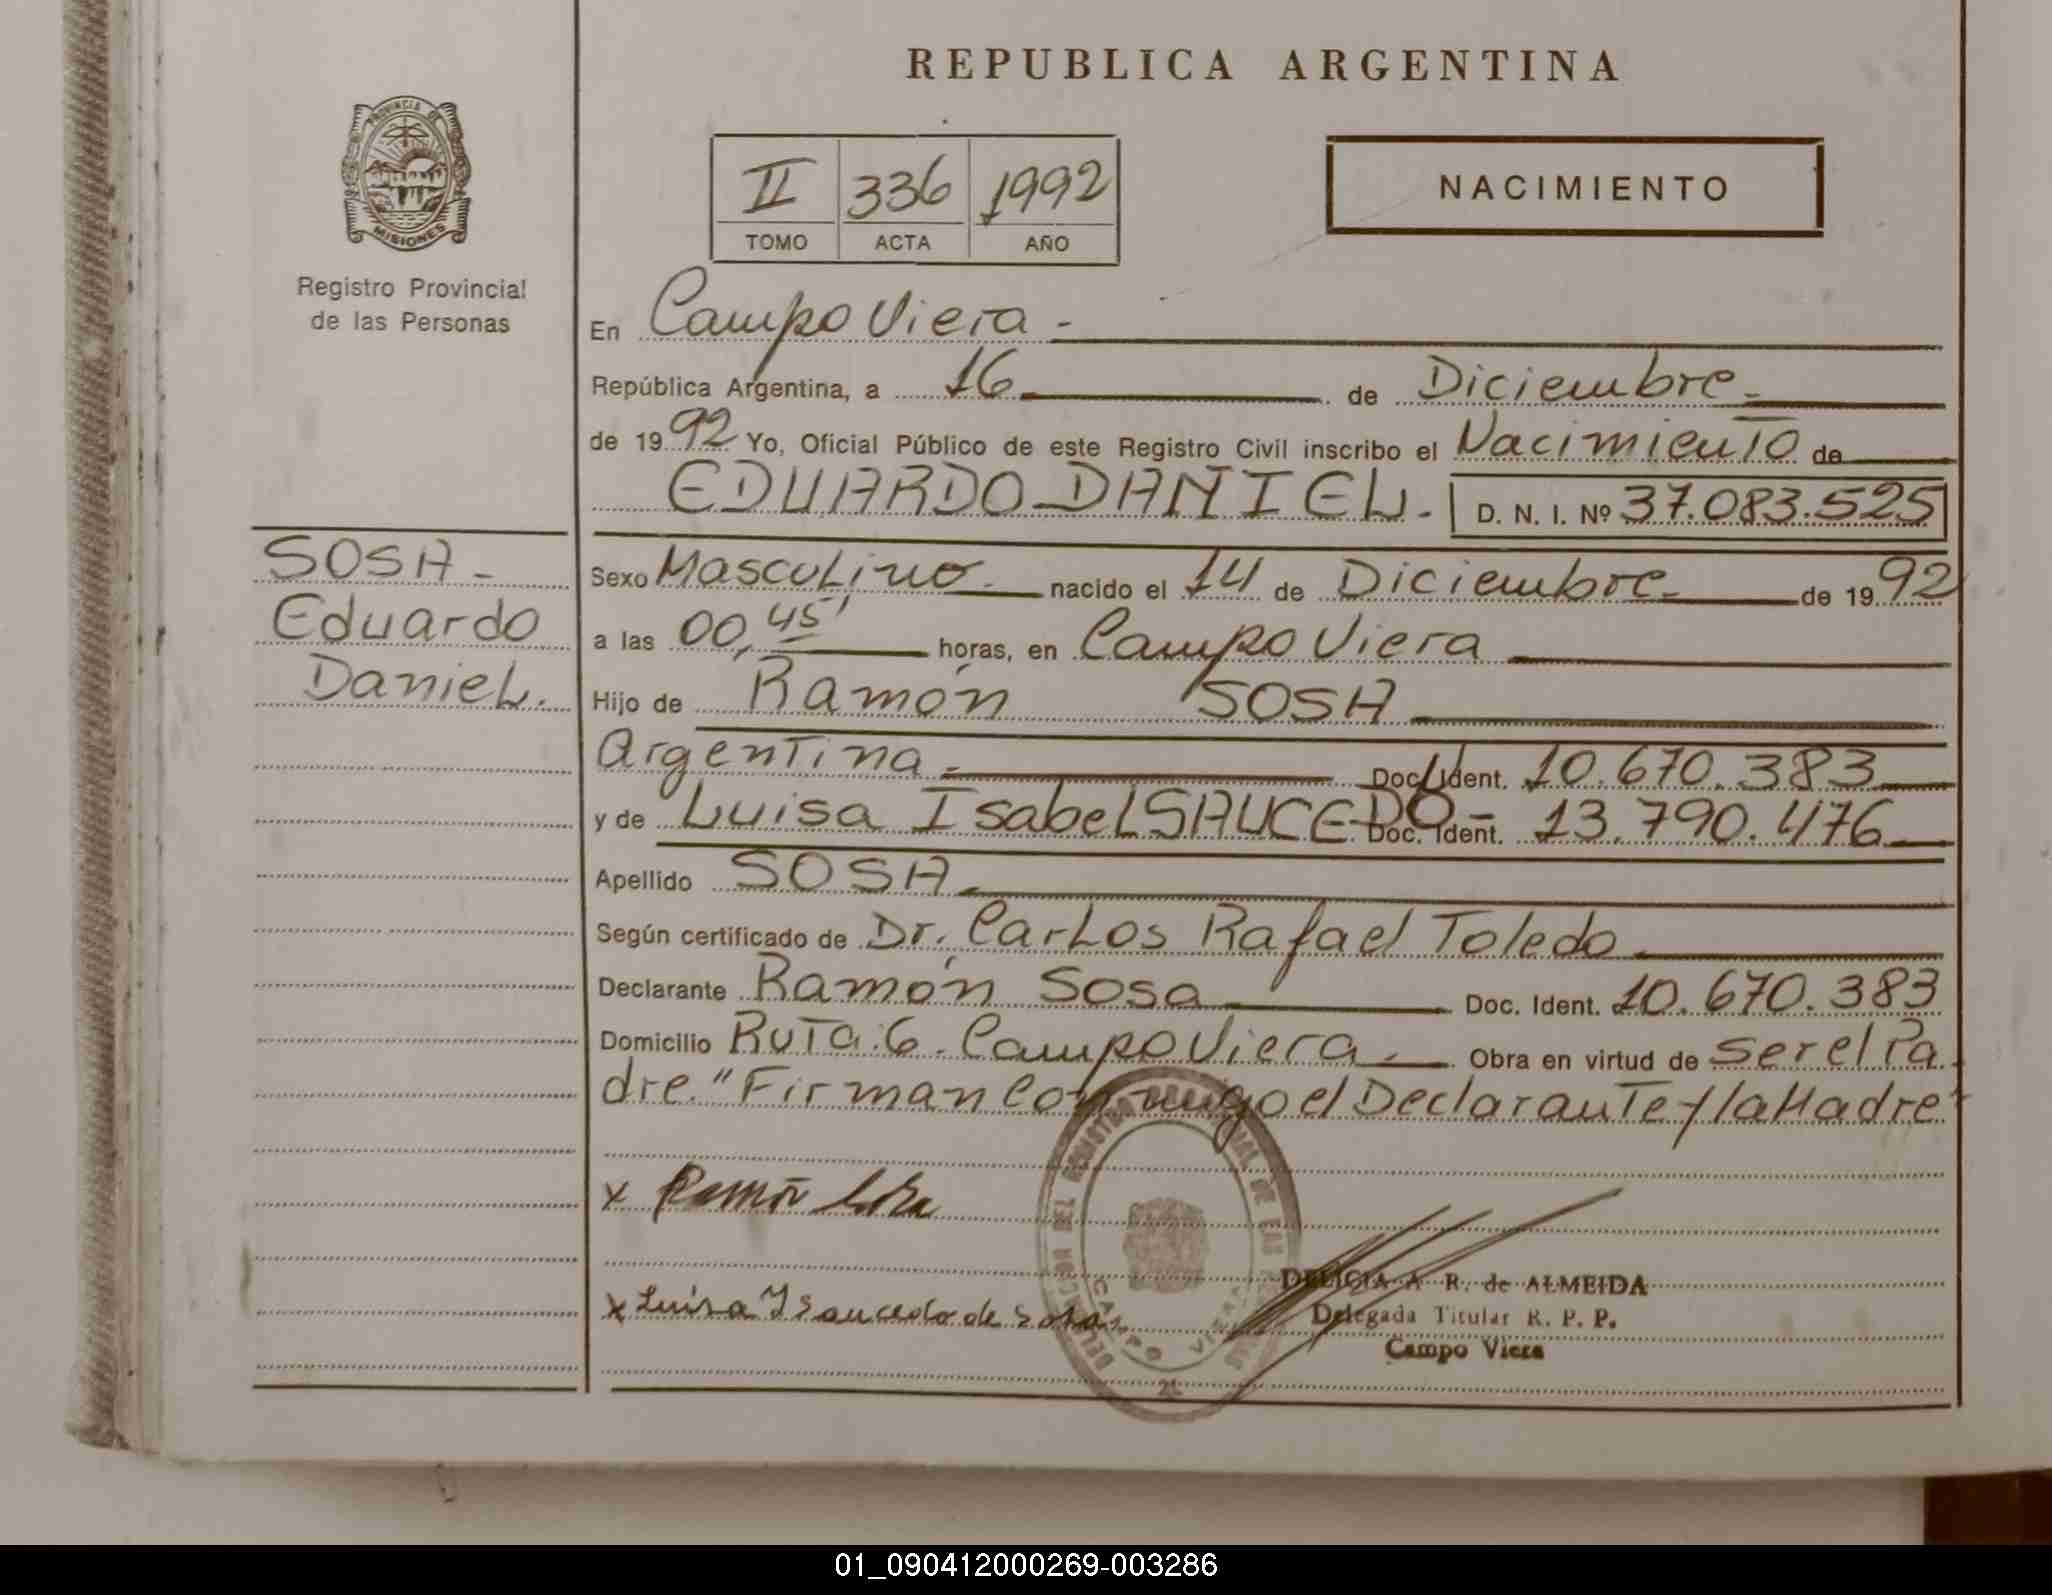 REPUBLICA ARGENTINA
PROVINCIA DE
MISIONES
Registro Provincial
de las Personas
II 336 1992
TOMO ACTA AÑO
NACIMIENTO
En Campo Viera -
República Argentina, a 16 de Diciembre
de 1992 Yo, Oficial Público de este Registro Civil inscribo el Nacimiento de
EDUARDO DANIEL. D. N. I. Nº 37.083.525
SOSA -
Eduardo
Daniel.
Sexo Masculino nacido el 14 de Diciembre de 1992
a las 00,45' horas, en Campo Viera
Hijo de Ramón SOSA
Argentina Doc. Ident. 10.670.383
y de Luisa Isabel SAUCEDO - Doc. Ident. 13.790.476
Apellido SOSA
Según certificado de Dr. Carlos Rafael Toledo
Declarante Ramón Sosa Doc. Ident. 10.670.383
Domicilio Ruta:6. Campo Viera. Obra en virtud de ser el Pa-
dre." Firman Conmigo el Declarante y la Madre"
x Ramón Sosa
x Luisa I Saucedo de Sosa
DELICIA A R. de ALMEIDA
Delegada Titular R. P. P.
Campo Viera
01_090412000269-003286